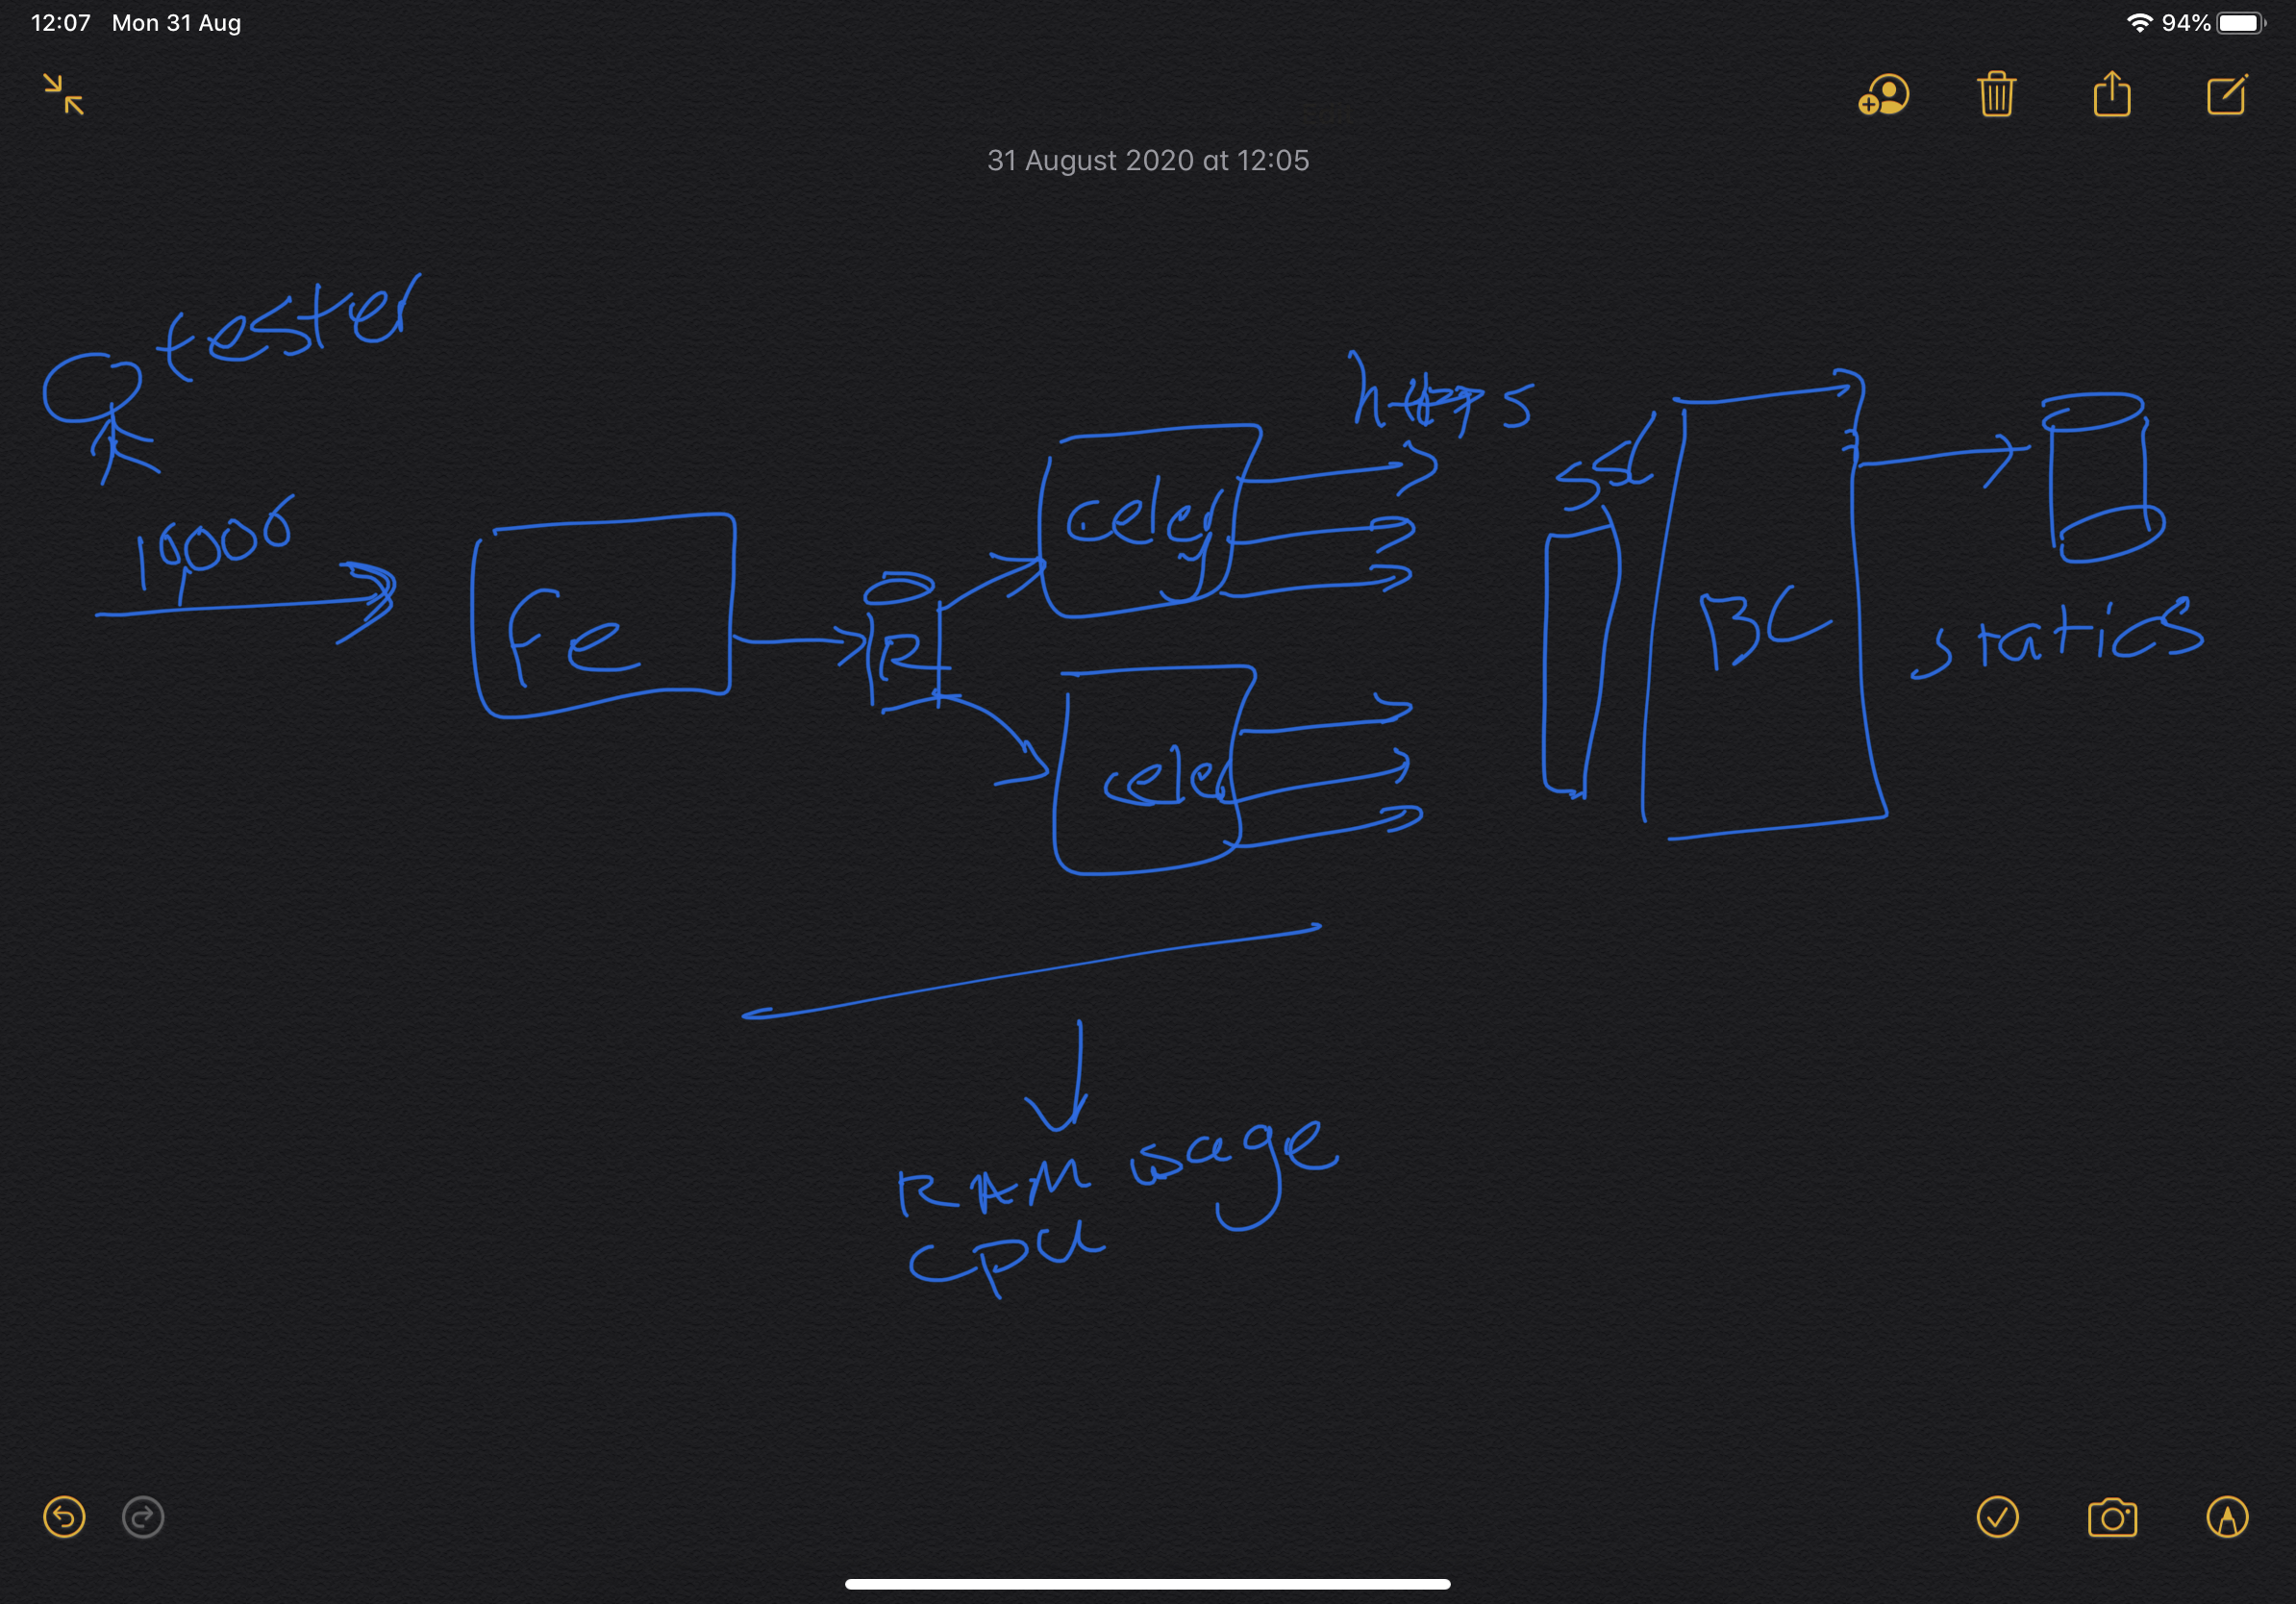 12:07 Mon 31 Aug
94%
31 August 2020 at 12:05
tester
10,000
Fe
R
celery
cele
https
SSL
BC
statics
RAM usage
CPU